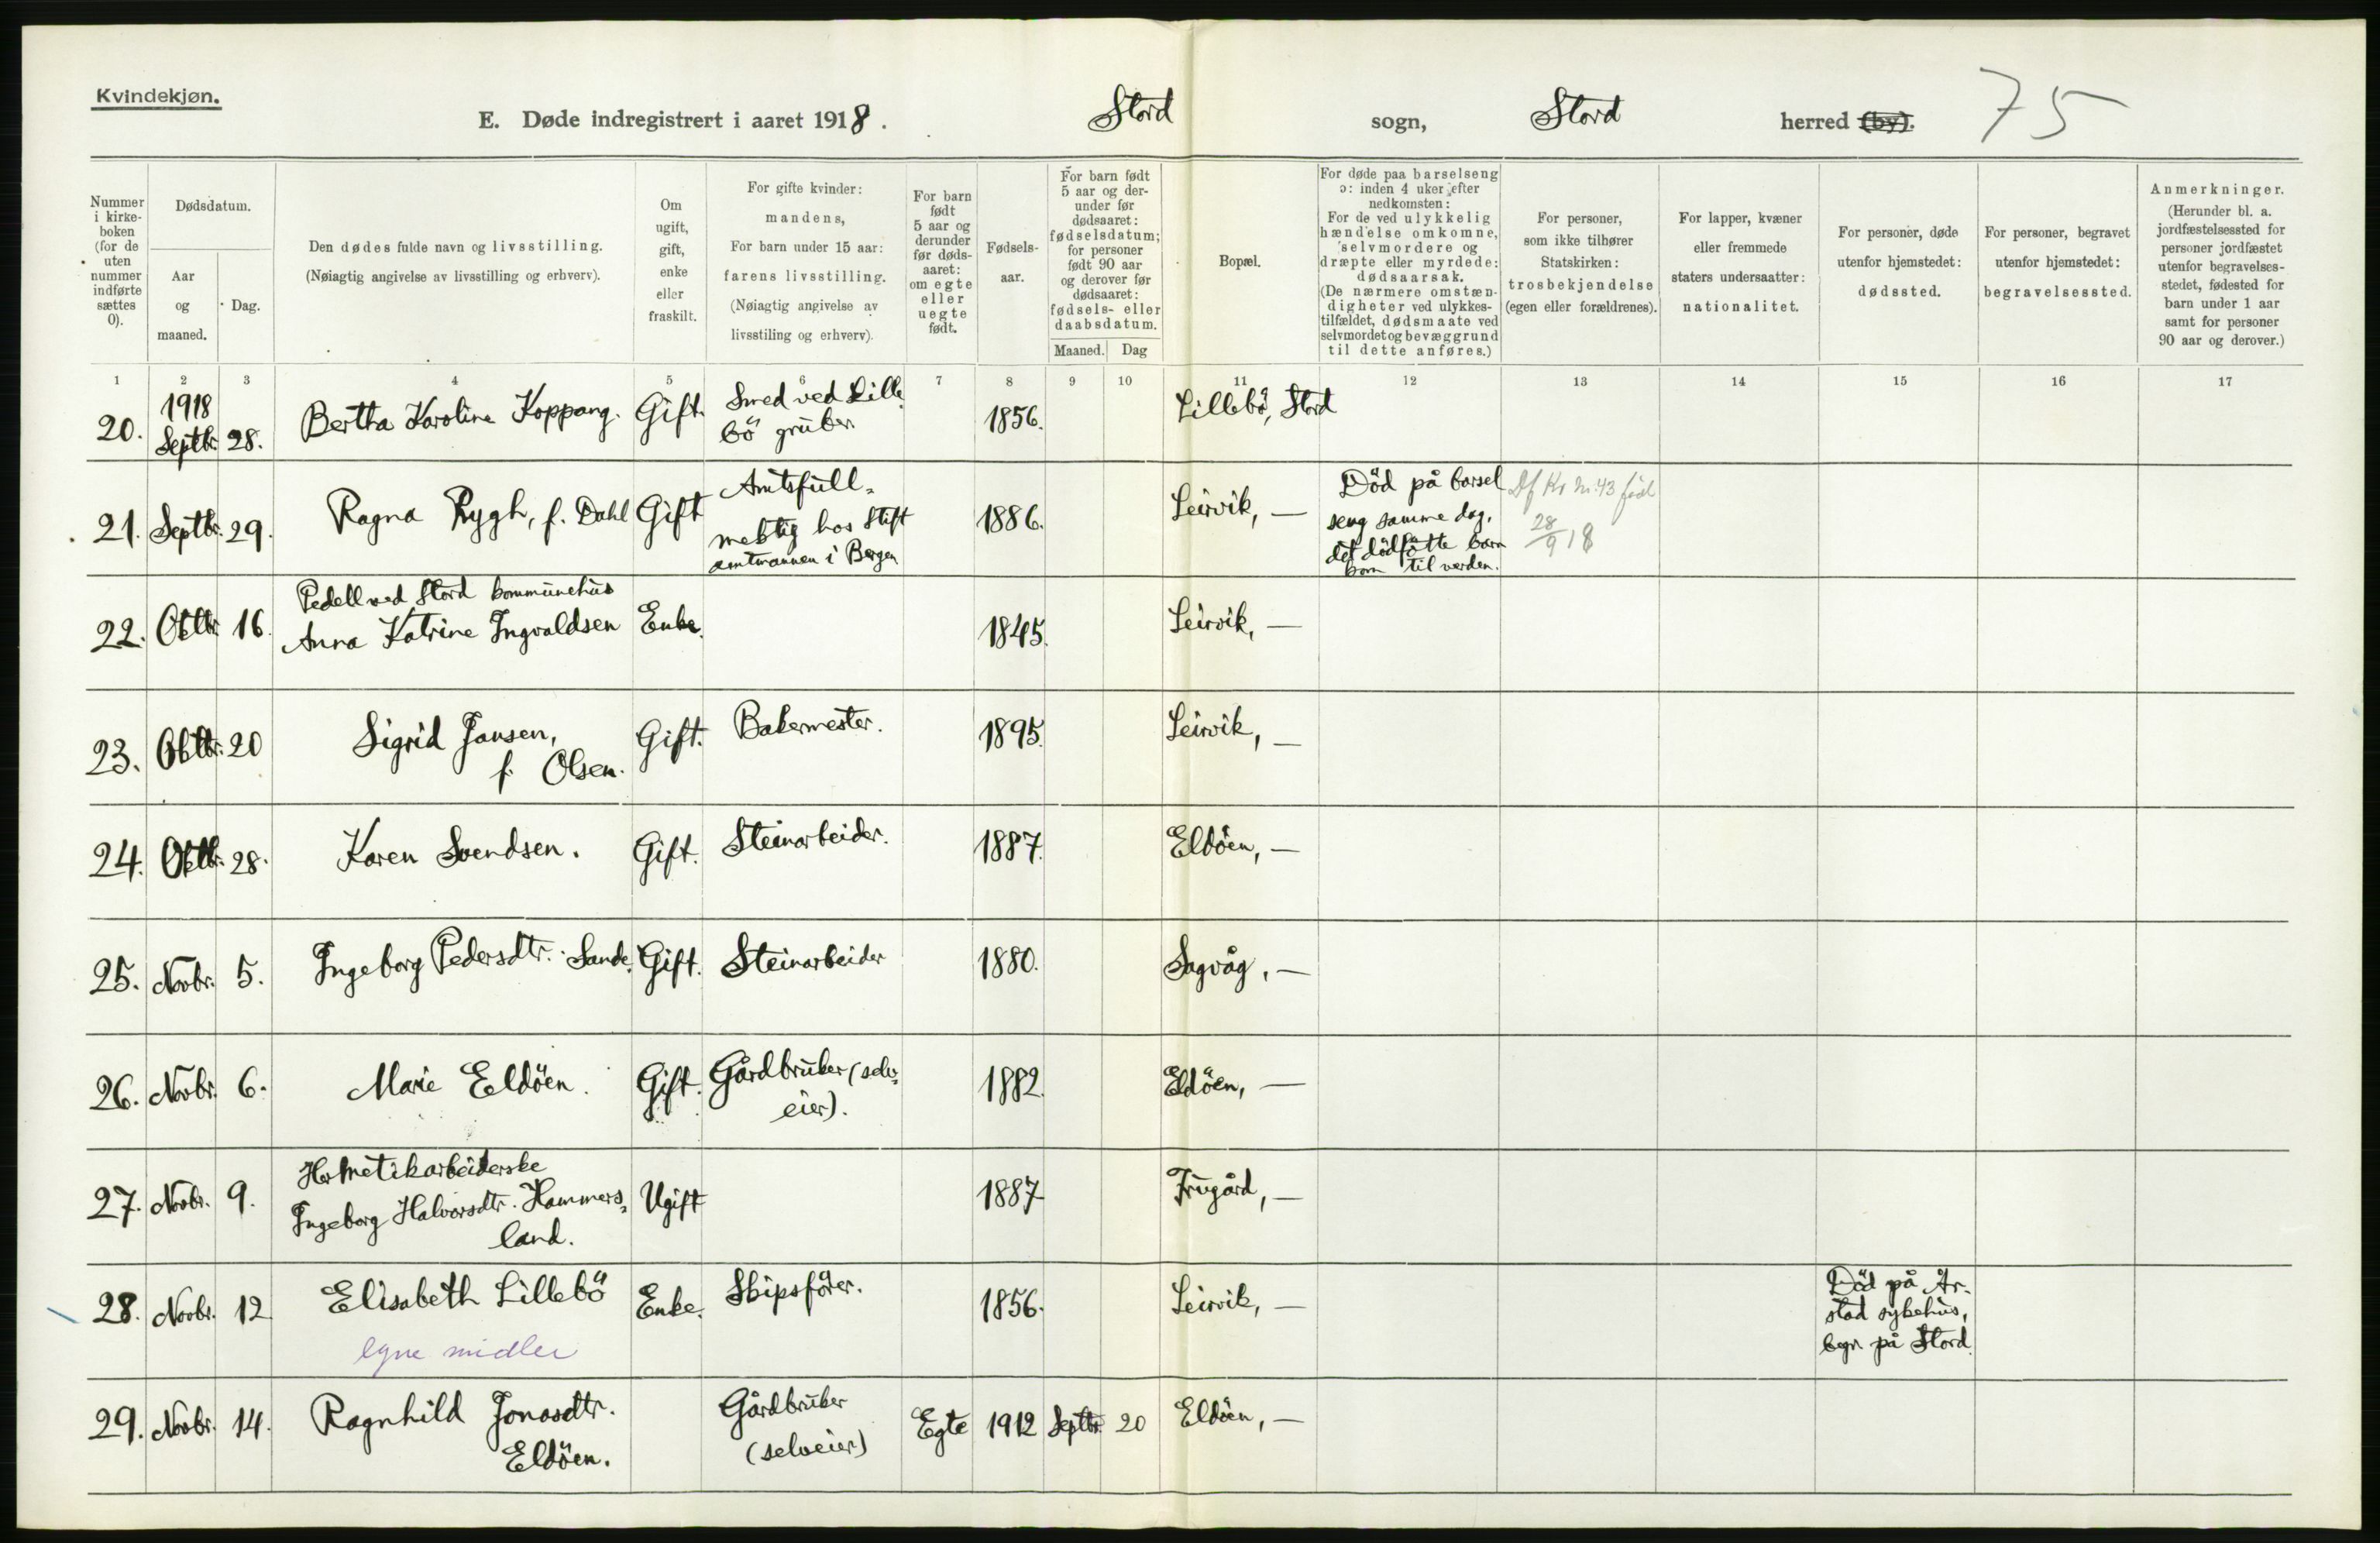 Kvindekjøn.
E. Døde indregistrert i aaret 1918.
Stord sogn, Stord herred (by).
75
Nummer i kirke-
boken
(for de
uten
nummer
indførte
sættes
0).
Dødsdatum.
Aar
og
maaned.
Dag.
Den dødes fulde navn og livsstilling.
(Nøiagtig angivelse av livsstilling og erhverv).
Om
ugift,
gift,
enke
eller
fraskilt.
For gifte kvinder:
mandens,
For barn under 15 aar:
farens livsstilling.
(Nøiagtig angivelse av
livsstiling og erhverv).
For barn
født
5 aar og
derunder
før døds-
aaret:
om egte
eller
uegte
født.
Fødsels-
aar.
For barn født
5 aar og der-
under før
dødsaaret:
fødselsdatum;
for personer
født 90 aar
og derover før
dødsaaret:
fødsels- eller
daabsdatum.
Maaned. Dag
Bopæl.
For døde paa barselseng
ɔ: inden 4 uker efter
nedkomsten:
For de ved ulykkelig
hændelse omkomne,
selvmordere og
dræpte eller myrdede:
dødsaarsak.
(De nærmere omstæn-
digheter ved ulykkes-
tilfældet, dødsmaate ved
selvmordet og bevæggrund
til dette anføres.)
For personer,
som ikke tilhører
Statskirken:
trosbekjendelse
(egen eller forældrenes).
For lapper, kvæner
eller fremmede
staters undersaatter:
nationalitet.
For personer, døde
utenfor hjemstedet:
dødssted.
For personer, begravet
utenfor hjemstedet:
begravelsessted.
Anmerkninger.
(Herunder bl. a.
jordfæstelsessted for
personer jordfæstet
utenfor begravelses-
stedet, fødested for
barn under 1 aar
samt for personer
90 aar og derover.)
1 2 3 4 5 6 7 8 9 10 11 12 13 14 15 16 17
20. 1918 Septbr. 28. Bertha Karoline Koppang. Gift. Smed ved Lille
bö gruber. 1856. Lillebö, Stord
21. Septbr. 29. Ragna Rygh, f. Dahl Gift Amtsfull-
mektig hos Stift
amtmannen i Bergen 1886. Leirvik, —
Död på barsel
seng samme dag,
det dödfötte barn
kom til verden.
28/9 18
22. Oktbr. 16. Pedell ved Stord kommunehus
Anna Katrine Ingvaldsen Enke. 1845. Leirvik, —
23. Oktbr. 20 Sigrid Jansen,
f. Olsen. Gift. Bakermester. 1895. Leirvik, —
24. Oktb. 28. Karen Svendsen. Gift. Steinarbeider. 1887. Eldöen, —
25. Novbr. 5. Ingeborg Pedersdtr. Sande. Gift. Steinarbeider 1880. Sagvåg, —
26. Novbr. 6. Marie Eldöen. Gift. Gårdbruker (selv-
eier). 1882. Eldöen, —
27. Novbr. 9. Hermetikarbeiderske
Ingeborg Halvorsdtr. Hammers-
land. Ugift 1887 Frugård, —
28. Novbr. 12 Elisabeth Lillebö Enke. Skipsförer. 1856. Leirvik, —
egne midler
Död på År-
stad sykehus,
begr på Stord.
29. Novbr. 14. Ragnhild Jonasdtr.
Eldöen. Gårdbruker
(selveier) Egte 1912 Septbr 20 Eldöen, —